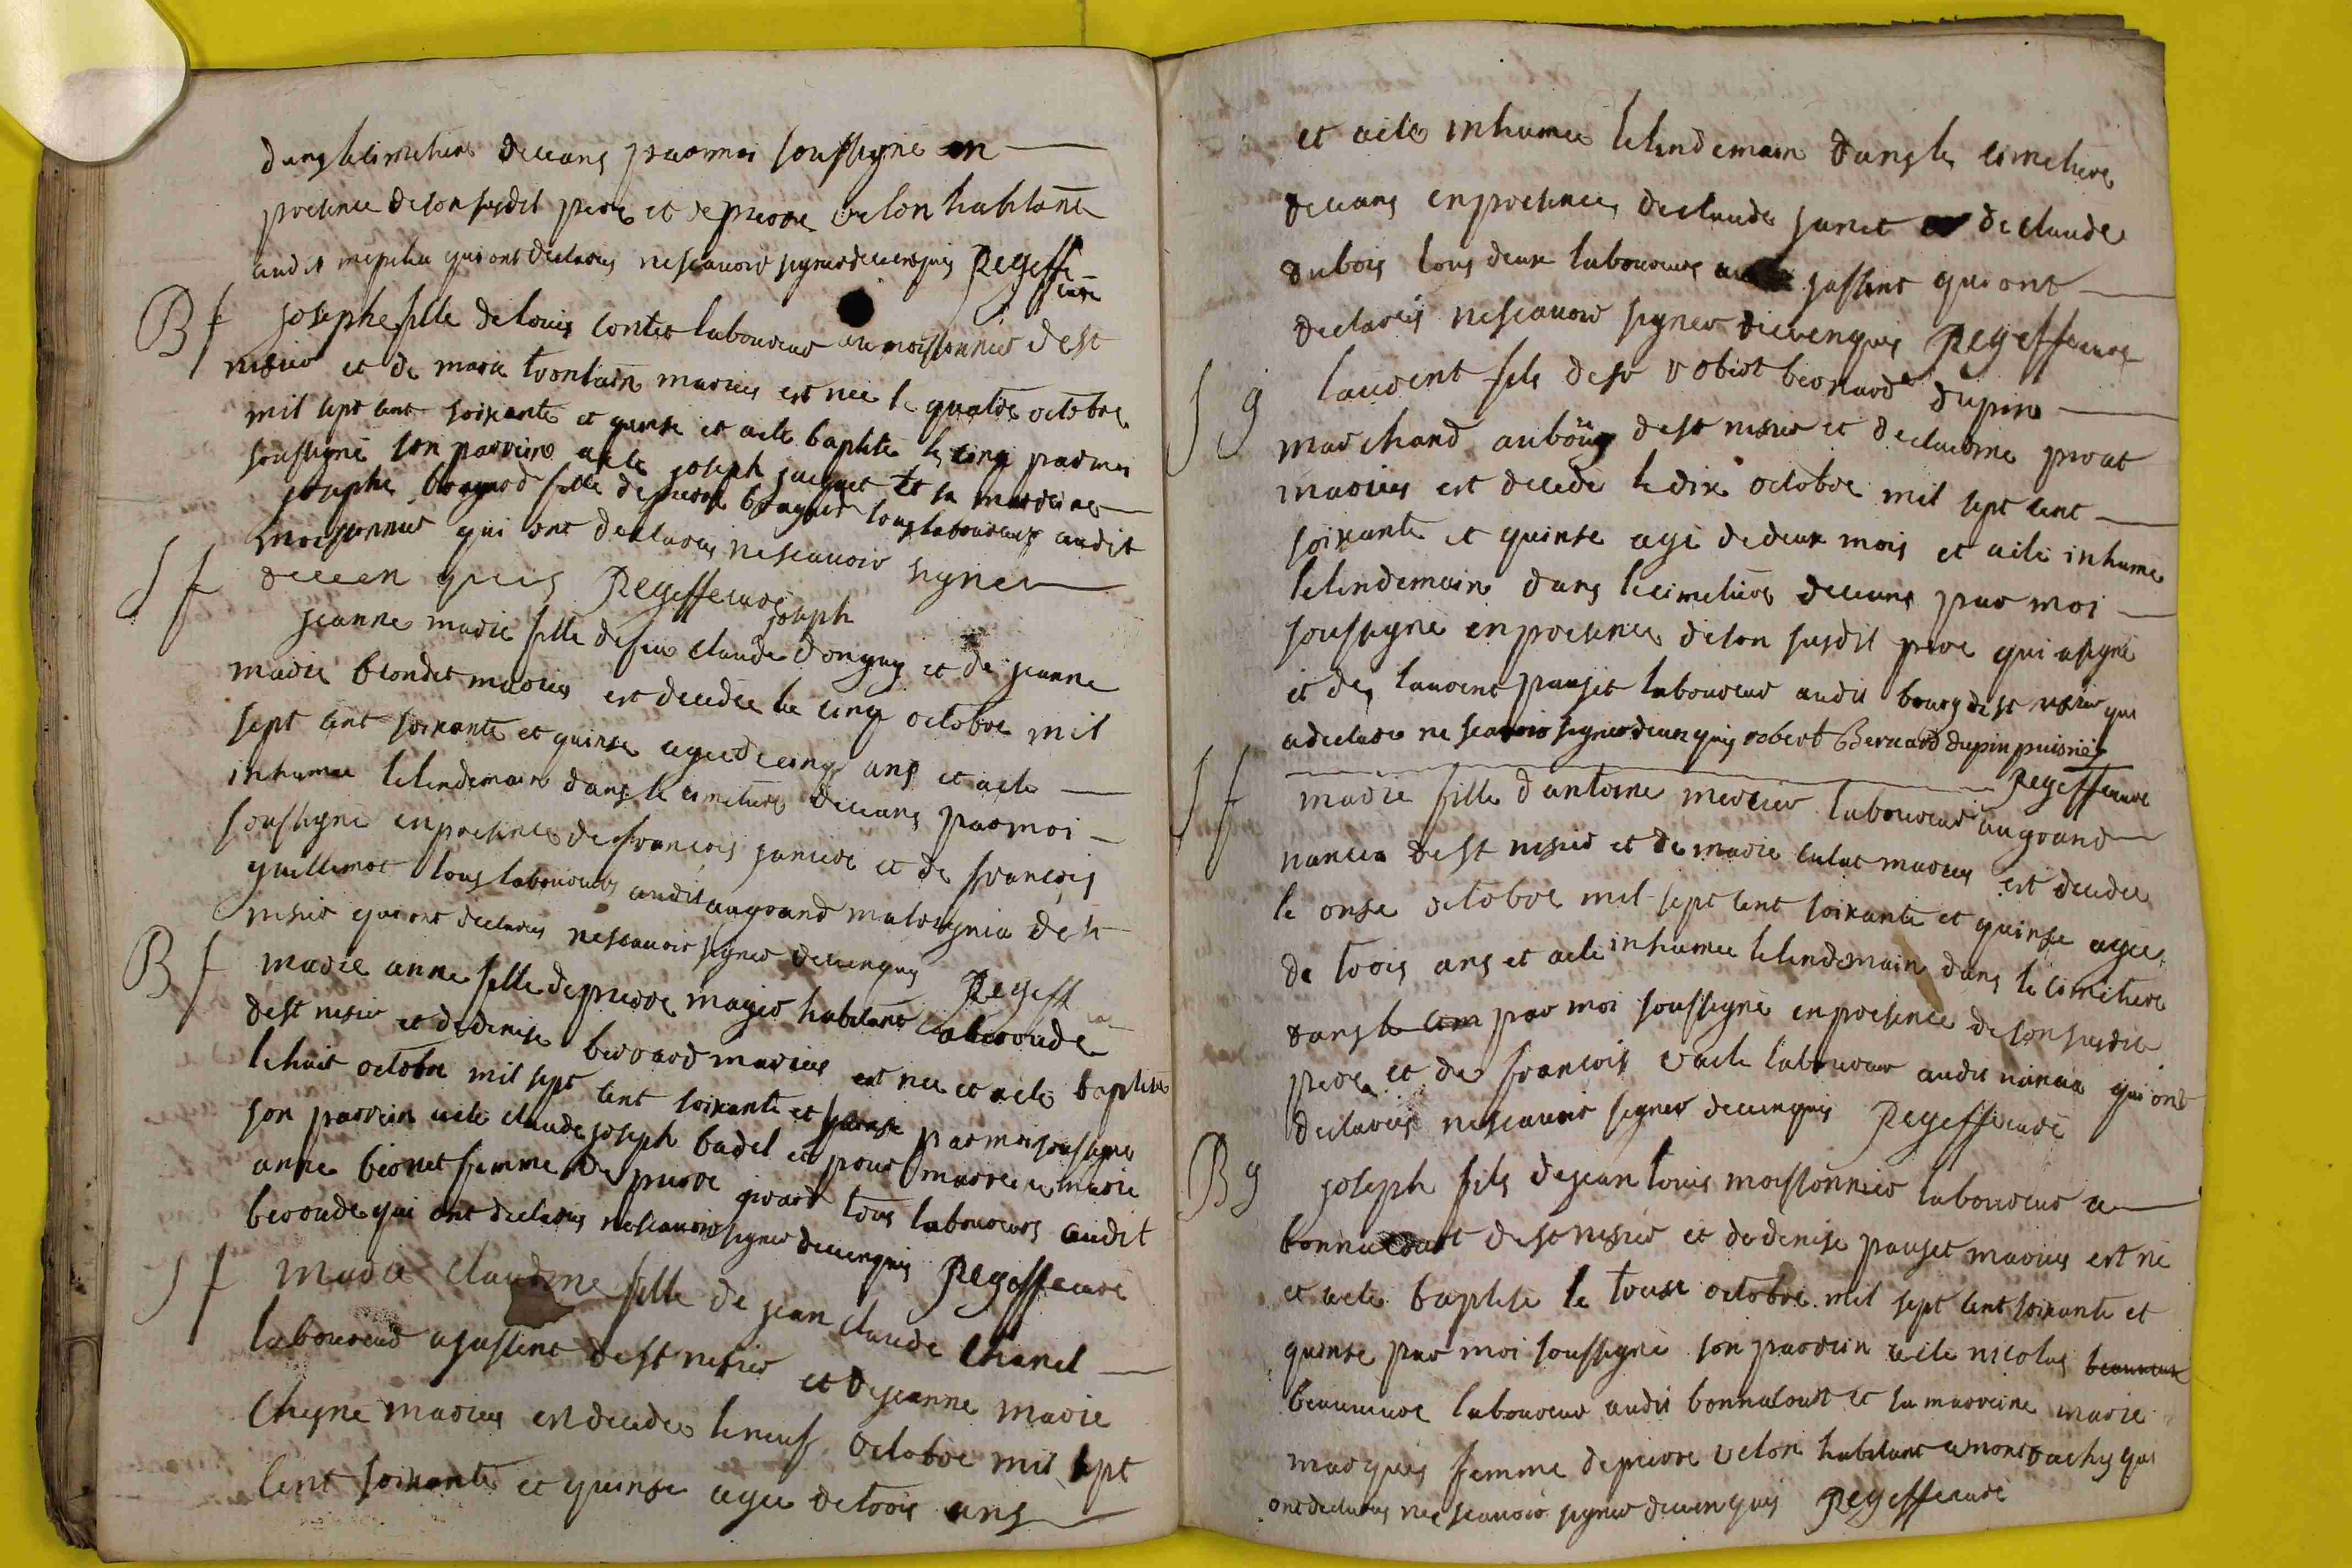 dans le cimetiere deceans par moi soussigné en
presence de son susdit pere et de pierre velon habitant
audit qui ont declarés ne scavoir signer de ce enquis Regeffe
cure
B f josephe fille de louis contet laboureur au moissonnier de st
nisier et de marie maries est née le quatre octobre
mil sept cent soixante et quinse et a ete baptisé le cinq par moi
soussigné son parrein a ete joseph jacquet et sa marreine
josephe fille de pierre tous laboureurs audit
moissonnier qui ont declarés ne scavoir signer
de ce en quis Regeffe curé
joseph
S f jeanne marie fille de feu claude donguy et de jeanne
marie blondet maries est decedée le cinq octobre mil
sept cent soixante et quinse agee de cinq ans et a ete
inhumee le lendemain dans le cimetiere deceans par moi
soussigné en presence de francois janiere et de francois
guillemot tous laboureurs audit au grand de st
nisier qui ont declarés ne scavoir signer de ce enquis Regeff
B f marie anne fille de pierre magier habitant a beroude
de st nisier et de denise beroard maries est nee et a ete baptisée
le huit octobre mil sept cent soixante et quinse par moi soussigné
son parrein a ete claude joseph badel et pour marreine marie
anne femme de pierre tous laboureurs audit
beroude qui ont declarés ne scavoir signer de ce enquis Regeffe curé
S f marie claudine fille de jean claude Chanel
laboureur a jassent de st nisier et de jeanne marie
Chygne maries est decedee le neuf octobre mil sept
cent soixante et quinse agee de trois ans
et a ete inhumee le lendemain dans le cimetiere
deceans en presence de claude janet de claude
dubois tous deux laboureurs jassent qui ont
declarés ne scavoir signer de ce enquis Regeffe cure
S g laurent fils de sr robert bernard dupin
marchand au bourg de st nisier et de claudine prat
maries est decede le dix octobre mil sept cent
soixante et quinse agé de deux mois et a ete inhumé
le lendemain dans le cimetiere deceans par moi
soussigné en presence de son susdit pere qui a signé
et de laurent pauget laboureur audit bourg de st nisier qui
a declaré ne scavoir signer de ce en quis robert Bernard dupin puisné
Regeffe cure
S f marie fille d'antoine mercier laboureur au grand
nancia de st nisier et de marie culat maries est decedee
le onse octobre mil sept cent soixante et quinse agee
de trois ans et a ete inhumee le lendemain dans le cimetiere
dans le cim par moi soussigné en presence de son susdit
pere et de francois laboureur audit nancia qui ont
declarés ne scavoir signer de ce enquis Regeffe curé
B g joseph fils de jean louis moissonnier laboureur a
bonnacourt de st nisier et de denise pauget maries est né
et a ete baptisé le octobre mil sept cent soixante et
quinse par moi soussigné son parrein a ete nicolas
laboureur audit bonnacourt et sa marreine marie
marguin femme de pierre velon habitant a qui
ont declarés ne scavoir signer de ce en quis Regeffe curé